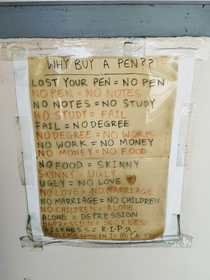 WHY BUY A PEN??
LOST YOUR PEN = NO PEN
NO PEN = NO NOTES
NO NOTES = NO STUDY
NO STUDY = FAIL
FAIL = NO DEGREE
NO DEGREE = NO WORK
NO WORK = NO MONEY
NO MONEY = NO FOOD
NO FOOD = SKINNY
SKINNY = UGLY
UGLY = NO LOVE
NO LOVE = NO MARRIAGE
NO MARRIAGE = NO CHILDREN
NO CHILDREN = ALONE
ALONE = DEPRESSION
DEPRESSION = SICKNESS
SICKNESS = R.I.P.